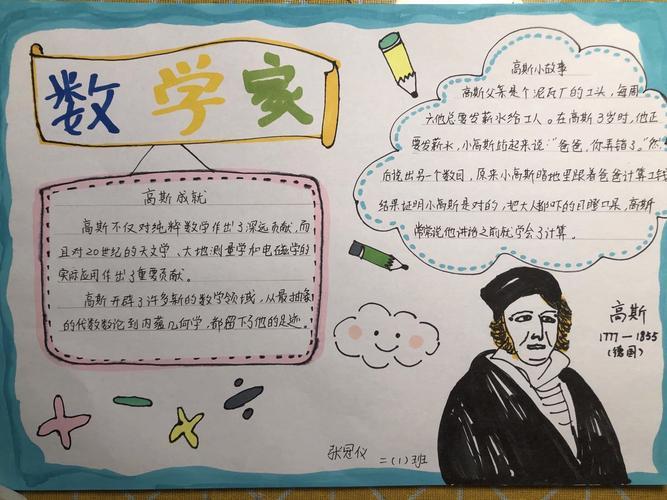 数学家
高斯成就
高斯不仅对纯粹数学作出了深远贡献,而
且对20世纪的天文学、大地测量学和电磁学的
实际应用作出了重要贡献。
高斯开辟了许多新的数学领域,从最抽象
的代数数论到内蕴几何学,都留下了他的足迹.
高斯小故事
高斯父亲是个泥瓦厂的工头,每周
六他总要发薪水给工人。在高斯3岁时,他正
要发薪水,小高斯站起来说:"爸爸,你弄错了。"然
后说出另一个数目,原来小高斯暗地里跟着爸爸计算工钱
结果证明小高斯是对的,把大人都吓的目瞪口呆,高斯
常常说他讲话之前就学会了计算.
高斯
1777—1855
(德国)
张冠仪 二(1)班